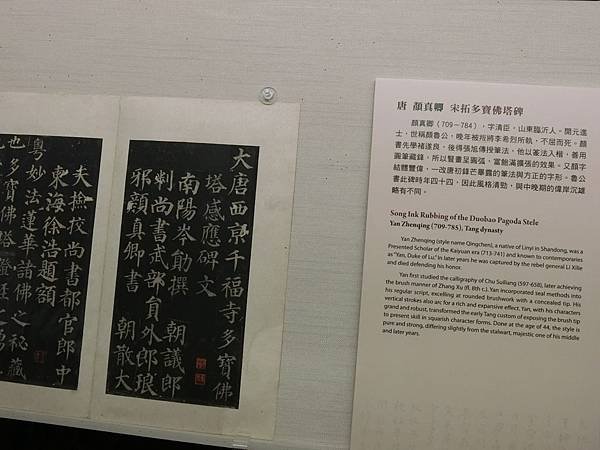 大唐西京千福寺多寶佛
塔感應碑文
南陽岑勛撰 朝議郎
判尚書武部員外郎琅
邪顏真卿書 朝散大
夫檢校尚書都官郎中
東海徐浩題額
粵妙法蓮華諸佛之秘藏
也多寶佛塔證經之
唐 顏真卿 宋拓多寶佛塔碑
顏真卿（709－784），字清臣，山東臨沂人。開元進
士，世稱顏魯公，晚年被叛將李希烈所執，不屈而死。顏
書先學褚遂良，後得張旭傳授筆法。他以篆法入楷，善用
圓筆藏鋒，所以豎畫呈圓弧、富飽滿擴張的效果。又顏字
結體豐偉，一改唐初鋒芒畢露的筆法與方正的字形。魯公
書此碑時年四十四，因此風格清勁，與中晚期的偉岸沉雄
略有不同。
Song Ink Rubbing of the Duobao Pagoda Stele
Yan Zhenqing (709-785), Tang dynasty
Yan Zhenqing (style name Qingchen), a native of Linyi in Shandong, was a
Presented Scholar of the Kaiyuan era (713-741) and known to contemporaries
as "Yan, Duke of Lu." In later years he was captured by the rebel general Li Xilie
and died defending his honor.
Yan first studied the calligraphy of Chu Suiliang (597-658), later achieving
the brush manner of Zhang Xu (fl. 8th c.). Yan incorporated seal methods into
his regular script, excelling at rounded brushwork with a concealed tip. His
vertical strokes also arc for a rich and expansive effect. Yan, with his characters
grand and robust, transformed the early Tang custom of exposing the brush tip
to present skill in squarish character forms. Done at the age of 44, the style is
pure and strong, differing slightly from the stalwart, majestic one of his middle
and later years.